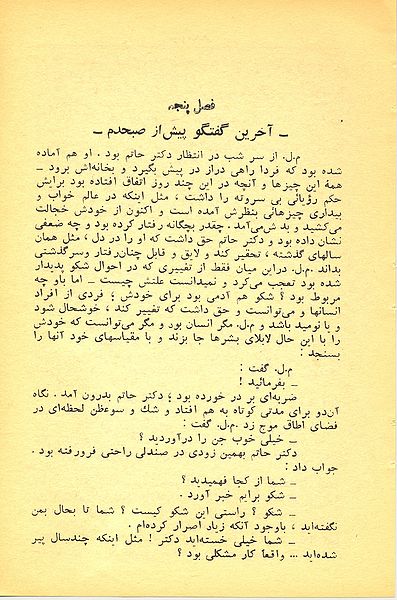 فصل پنجم
ـ آخرین گفتگو پیش‌از صبحدم ـ
م.ل. از سر شب در انتظار دکتر حاتم بود . او هم آماده
شده بود که فردا راهی دراز در پیش بگیرد و بخانه‌اش برود ـ
همهٔ این چیزها و آنچه در این چند روز اتفاق افتاده بود برایش
حکم رؤیائی بی سروته را داشت ، مثل اینکه در عالم خواب و
بیداری چیزهائی بنظرش آمده است و اکنون از خودش خجالت
می‌کشید و بد ش‌می‌آمد . چقدر بچگانه رفتار کرده بود و چه ضعفی
نشان داده بود و دکتر حاتم حق داشت که او را در دل ، مثل همان
سالهای گذشته ، تحقیر کند و لایق و قابل چنان‌رفتار وسرگذشتی
بداند .م.ل. دراین میان فقط از تغییری که در احوال شکو پدیدار
شده بود تعجب می‌کرد و نمیدانست علتش چیست ـ اما باو چه
مربوط بود ؟ شکو هم آدمی بود برای خودش ؛ فردی از افراد
انسانها و می‌توانست و حق داشت که تغییر کند ، خوشحال شود
و یا نومید باشد و م.ل. مگر انسان بود و مگر می‌توانست که خودش
را با این حال لابلای بشرها جا بزند و با مقیاسهای خود آنها را
بسنجد :
م.ل. گفت :
ـ بفرمائید !
ضربه‌ای بر در خورده بود ؛ دکتر حاتم بدرون آمد . نگاه
آن‌دو برای مدتی کوتاه به هم افتاد و شك و سوءظن لحظه‌ای در
فضای اطاق موج زد .م.ل. گفت :
ـ خیلی خوب جن را درآوردید ؟
دکتر حاتم بهمین زودی در صندلی راحتی فرورفته بود .
جواب داد :
ـ شما از کجا فهمیدید ؟
ـ شکو برایم خبر آورد .
ـ شکو ؟ راستی این شکو کیست ؟ شما تا بحال بمن
نگفته‌اید ، باوجود آنکه زیاد اصرار کرده‌ام .
ـ شما خیلی خسته‌اید دکتر ! مثل اینکه چندسال پیر
شده‌اید ... واقعاً کار مشکلی بود ؟